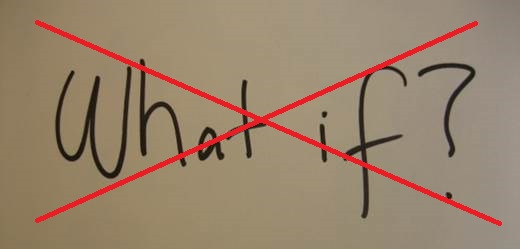 What if?